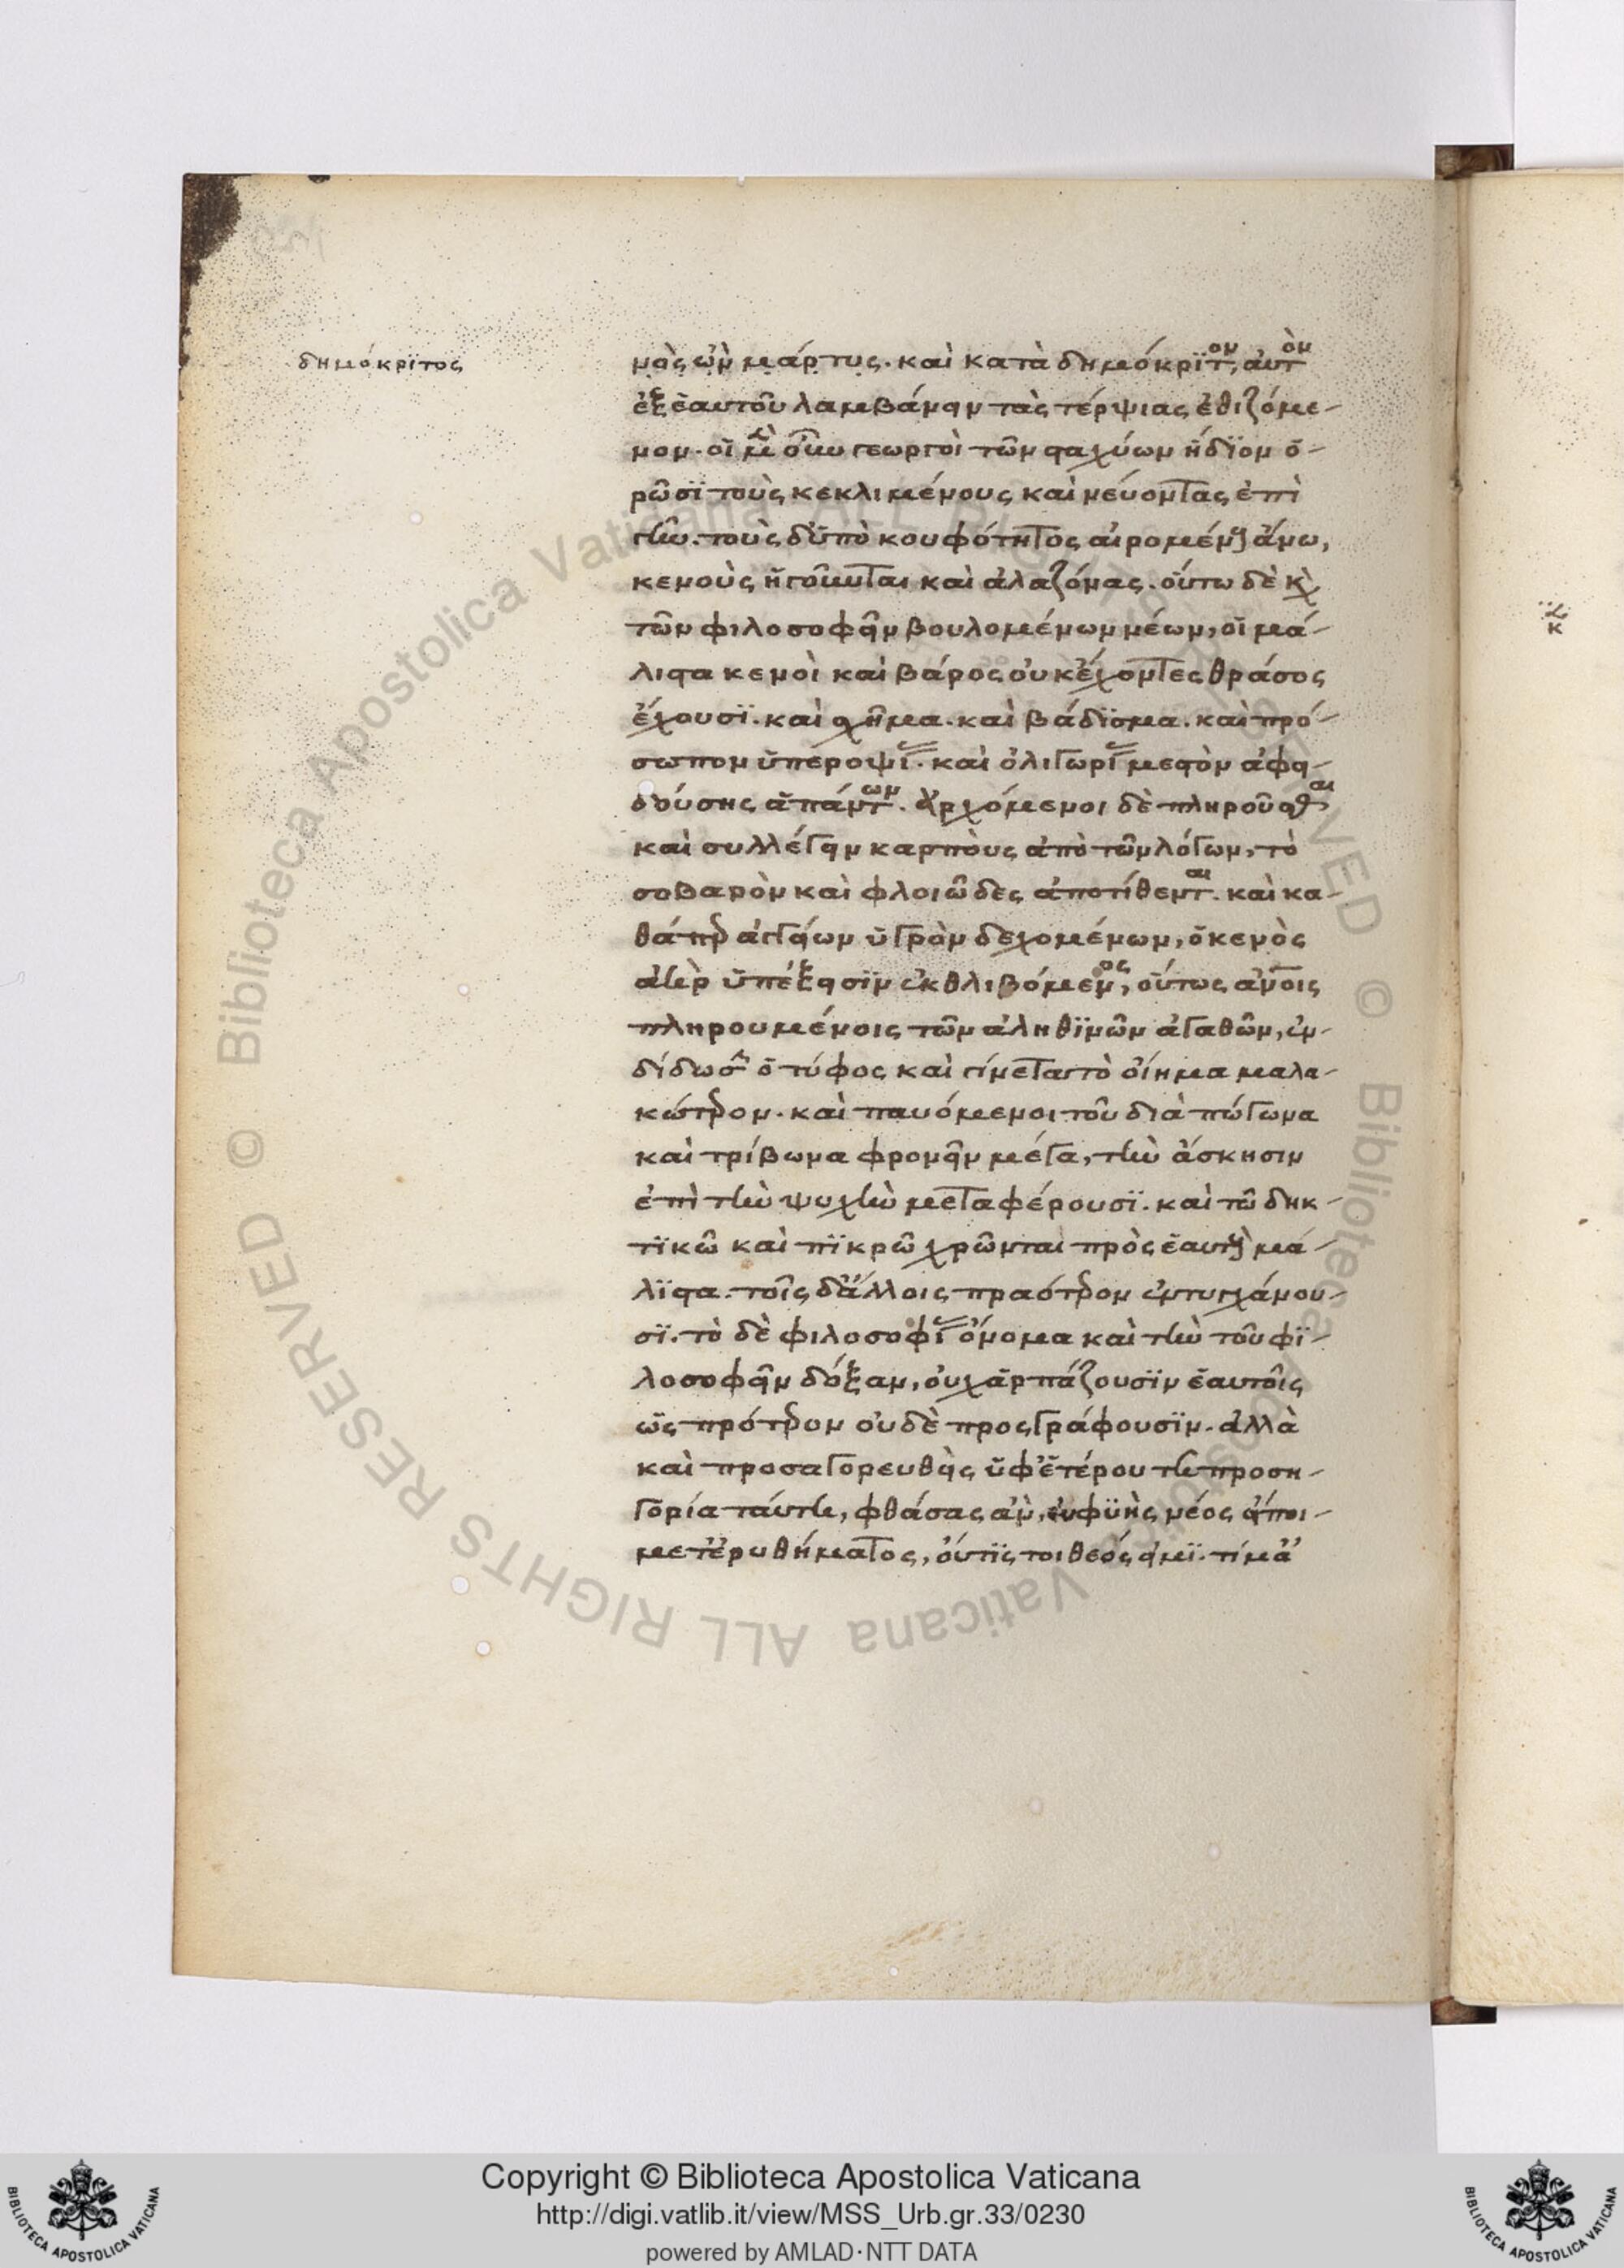 δημόκριτος
μὸς ὢν μάρτυς. καὶ κατὰ δημόκριτον, αὐτὸν
ἐξ ἑαυτοῦ λαμβάνειν τὰς τέρψιας ἐθιζόμε-
νον. οἱ μὲν οὖν γεωργοὶ τῶν σταχύων ἥδιον ὁ-
ρῶσι τοὺς κεκλιμένους καὶ νεύοντας ἐπὶ
γῆν. τοὺς δ' ὑπὸ κουφότητος αἰρομένους ἄνω,
κενοὺς ἡγοῦνται καὶ ἀλαζόνας. οὕτω δὲ καὶ
τῶν φιλοσοφεῖν βουλομένων νέων, οἱ μά-
λιστα κενοὶ καὶ βάρος οὐκ ἔχοντες θράσος
ἔχουσι. καὶ σχῆμα. καὶ βάδισμα. καὶ πρό-
σωπον ὑπεροψίας. καὶ ὀλιγωρίας μεστὸν ἀφει-
δούσης ἁπάντων. ἀρχόμενοι δὲ πληροῦσθαι
καὶ συλλέγειν καρποὺς ἀπὸ τῶν λόγων, τὸ
σοβαρὸν καὶ φλοιῶδες ἀποτίθενται. καὶ κα-
θάπερ ἀγγείων ὑγρὸν δεχομένων, ὁ κενὸς
ἀὴρ ὑπέξεισιν ἐκθλιβόμενος, οὕτως ἀνοις
πληρουμένοις τῶν ἀληθινῶν ἀγαθῶν, ἐν-
δίδωσιν ὁ τύφος καὶ γίνεται τὸ οἴημα μαλα-
κώτερον. καὶ παυόμενοι τοῦ διὰ πώγωνα
καὶ τρίβωνα φρονεῖν μέγα, τὴν ἄσκησιν
ἐπὶ τὴν ψυχὴν μεταφέρουσι. καὶ τῶ δηκ-
τικῶ καὶ πικρῶ χρῶνται πρὸς ἑαυτοὺς μά-
λιστα. τοῖς δ' ἄλλοις πραότερον ἐντυγχάνου-
σι. τὸ δὲ φιλοσοφίας ὄνομα καὶ τὴν τοῦ φι-
λοσοφεῖν δόξαν, οὐχ ἁρπάζουσιν ἑαυτοῖς
ὡς πρότερον οὐδὲ προσγράφουσιν. ἀλλὰ
καὶ προσαγορευθεὶς ὑφ' ἑτέρου τῆ προση-
γορία ταύτη, φθάσας ἂν, εὐφυὴς νέος εἴποι
μετ' ἐρυθήματος, οὔτις τοι θεός εἰμι. τί μ' ἀ
Copyright © Biblioteca Apostolica Vaticana
http://digi.vatlib.it/view/MSS_Urb.gr.33/0230
powered by AMLAD·NTT DATA